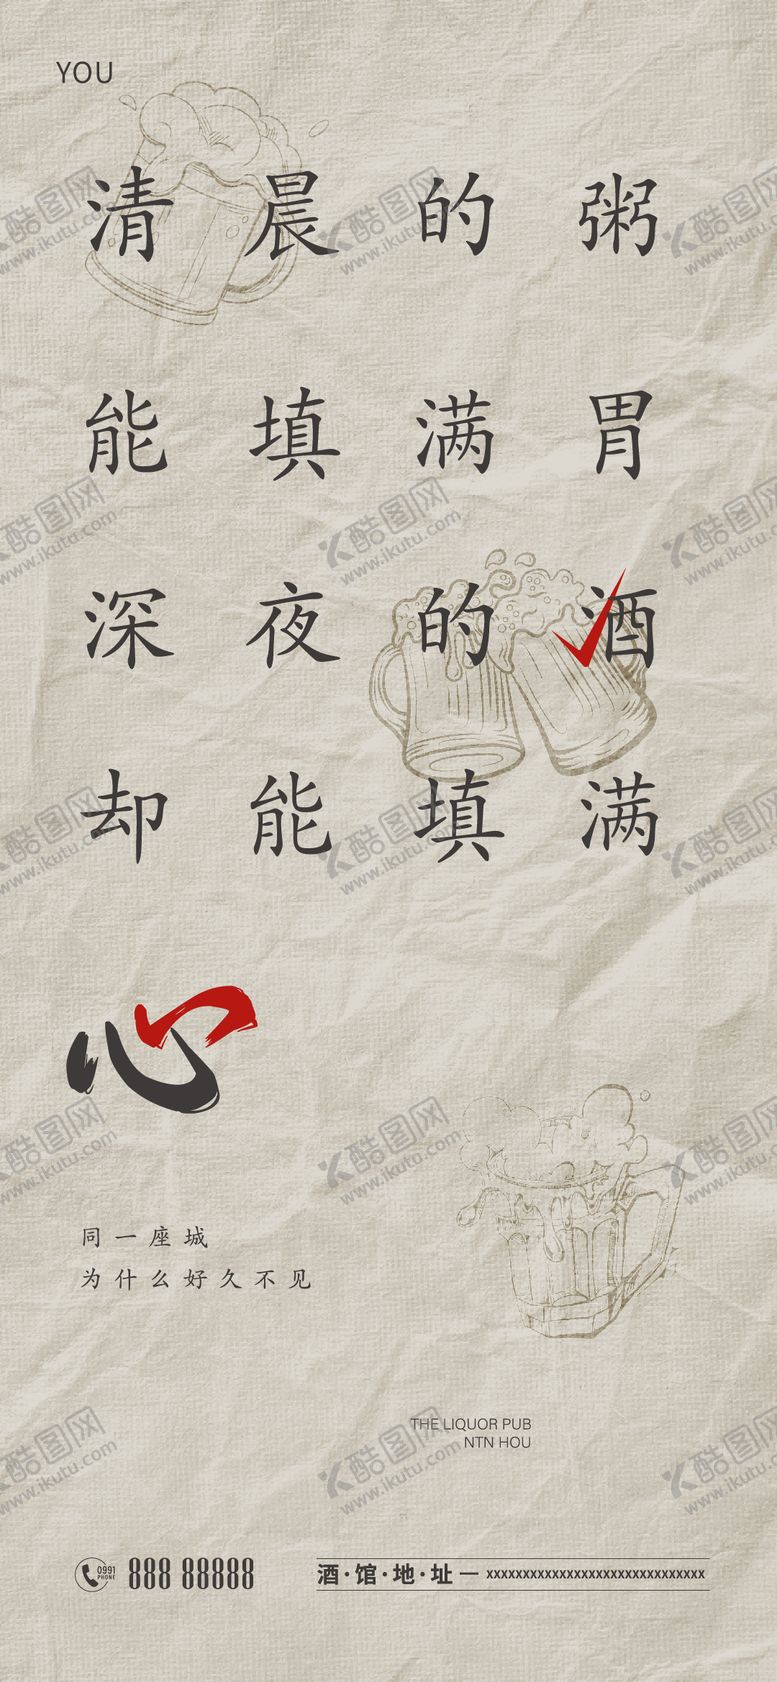 YOU
清晨的粥
能填满胃
深夜的酒
却能填满
心
同一座城
为什么好久不见
THE LIQUOR PUB
NTN HOU
0991
PHONE
888 88888
酒·馆·地·址一 xxxxxxxxxxxxxxxxxxxxxxxxxxxxxx
酷图网
www.ikutu.com